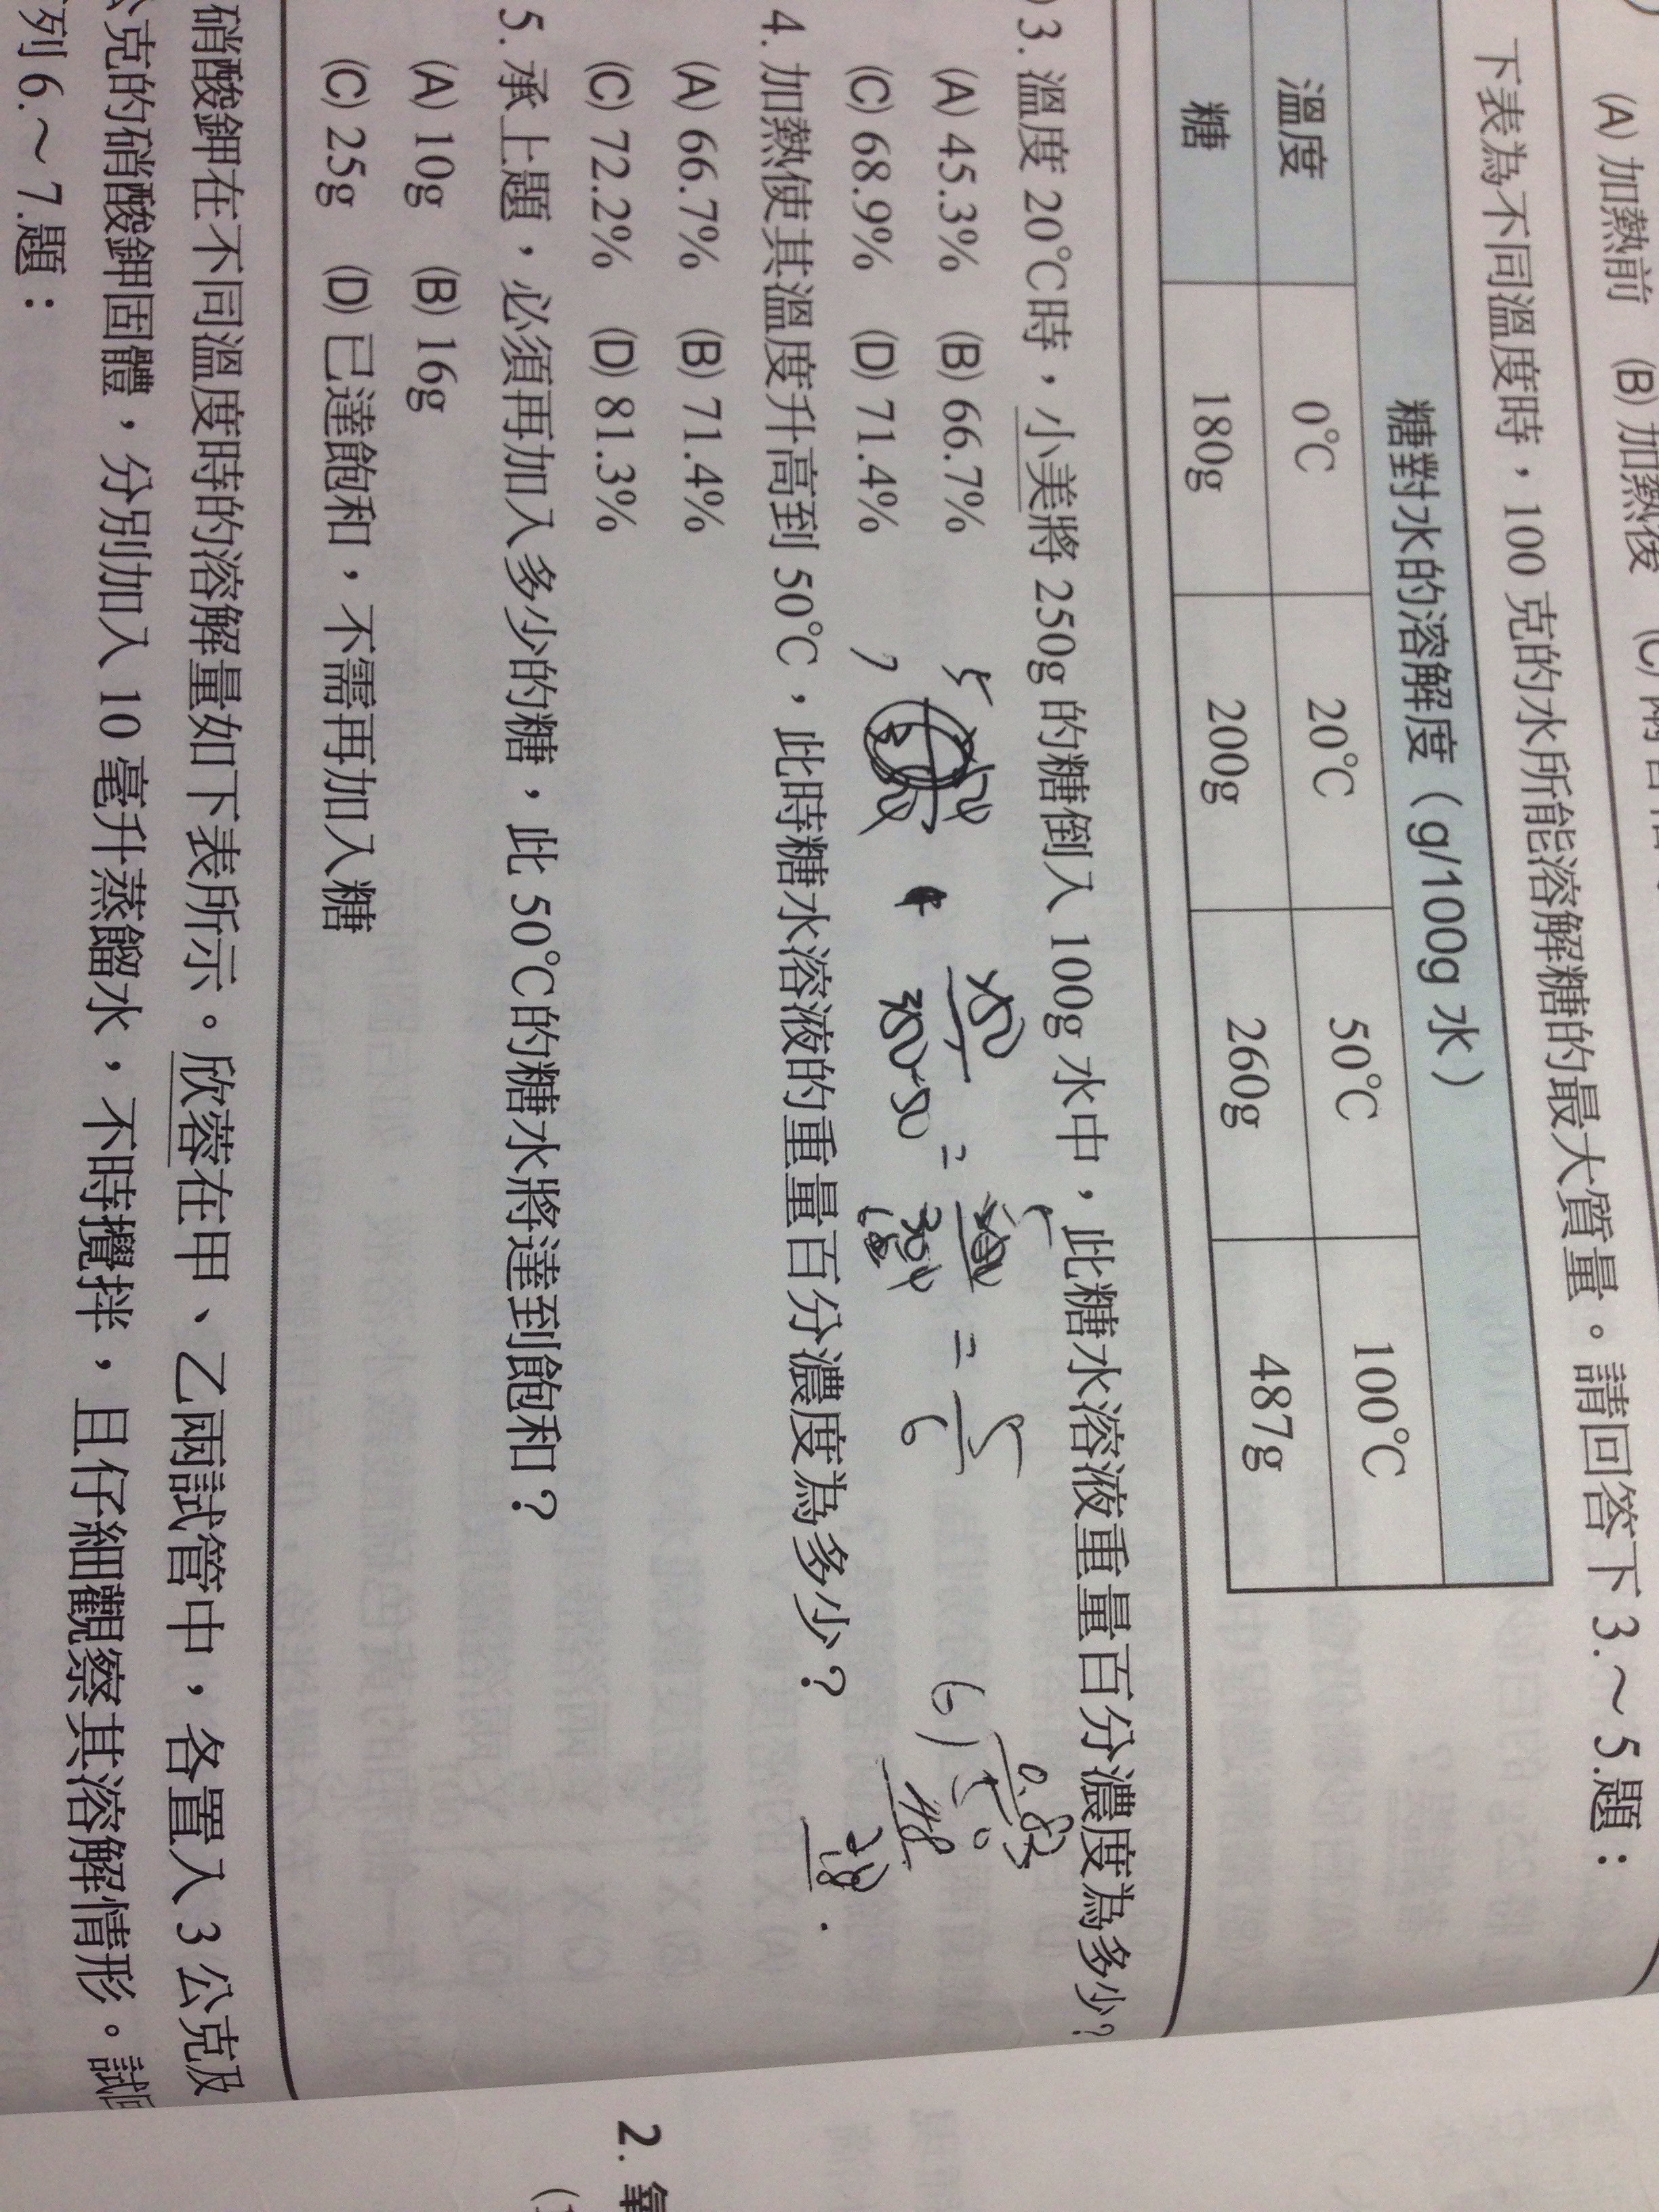 (A) 加熱前 (B) 加熱後 (C)
下表為不同溫度時，100 克的水所能溶解糖的最大質量。請回答下 3.～5.題：
糖對水的溶解度（g/100g 水）
溫度 0℃ 20℃ 50℃ 100℃
糖 180g 200g 260g 487g
)3. 溫度 20℃時，小美將 250g 的糖倒入 100g 水中，此糖水溶液重量百分濃度為多少？
(A) 45.3% (B) 66.7%
(C) 68.9% (D) 71.4%
= = 5/6
6) 0.83
4. 加熱使其溫度升高到 50℃，此時糖水溶液的重量百分濃度為多少？
(A) 66.7% (B) 71.4%
(C) 72.2% (D) 81.3%
5. 承上題，必須再加入多少的糖，此 50℃的糖水將達到飽和？
(A) 10g (B) 16g
(C) 25g (D) 已達飽和，不需再加入糖
硝酸鉀在不同溫度時的溶解量如下表所示。欣蓉在甲、乙兩試管中，各置入 3 公克及
公克的硝酸鉀固體，分別加入 10 毫升蒸餾水，不時攪拌，且仔細觀察其溶解情形。試
列 6.～7.題：
2. 氧